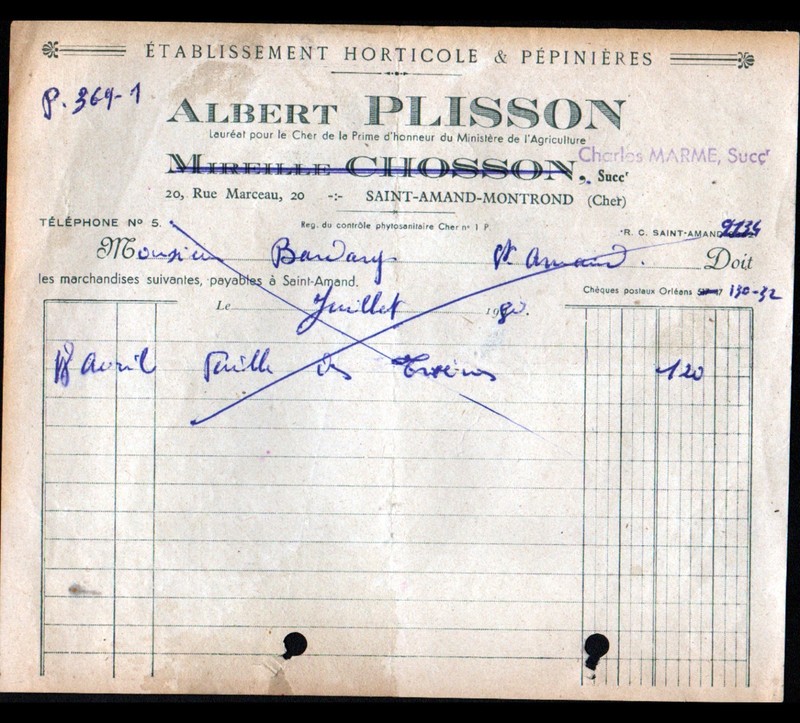 ÉTABLISSEMENT HORTICOLE & PÉPINIÈRES
P. 364-1
ALBERT PLISSON
Lauréat pour le Cher de la Prime d'honneur du Ministère de l'Agriculture
MIREILLE CHOSSON, Succr
Charles MARME, Succr
20, Rue Marceau, 20 -:- SAINT-AMAND-MONTROND (Cher)
TÉLÉPHONE No 5.
Reg. du contrôle phytosanitaire Cher no 1 P.
R. C. SAINT-AMAND
Monsieur St Amand. Doit
les marchandises suivantes, payables à Saint-Amand.
Chèques postaux Orléans 130-32
Le Juillet 19
18 Avril Taille des 120